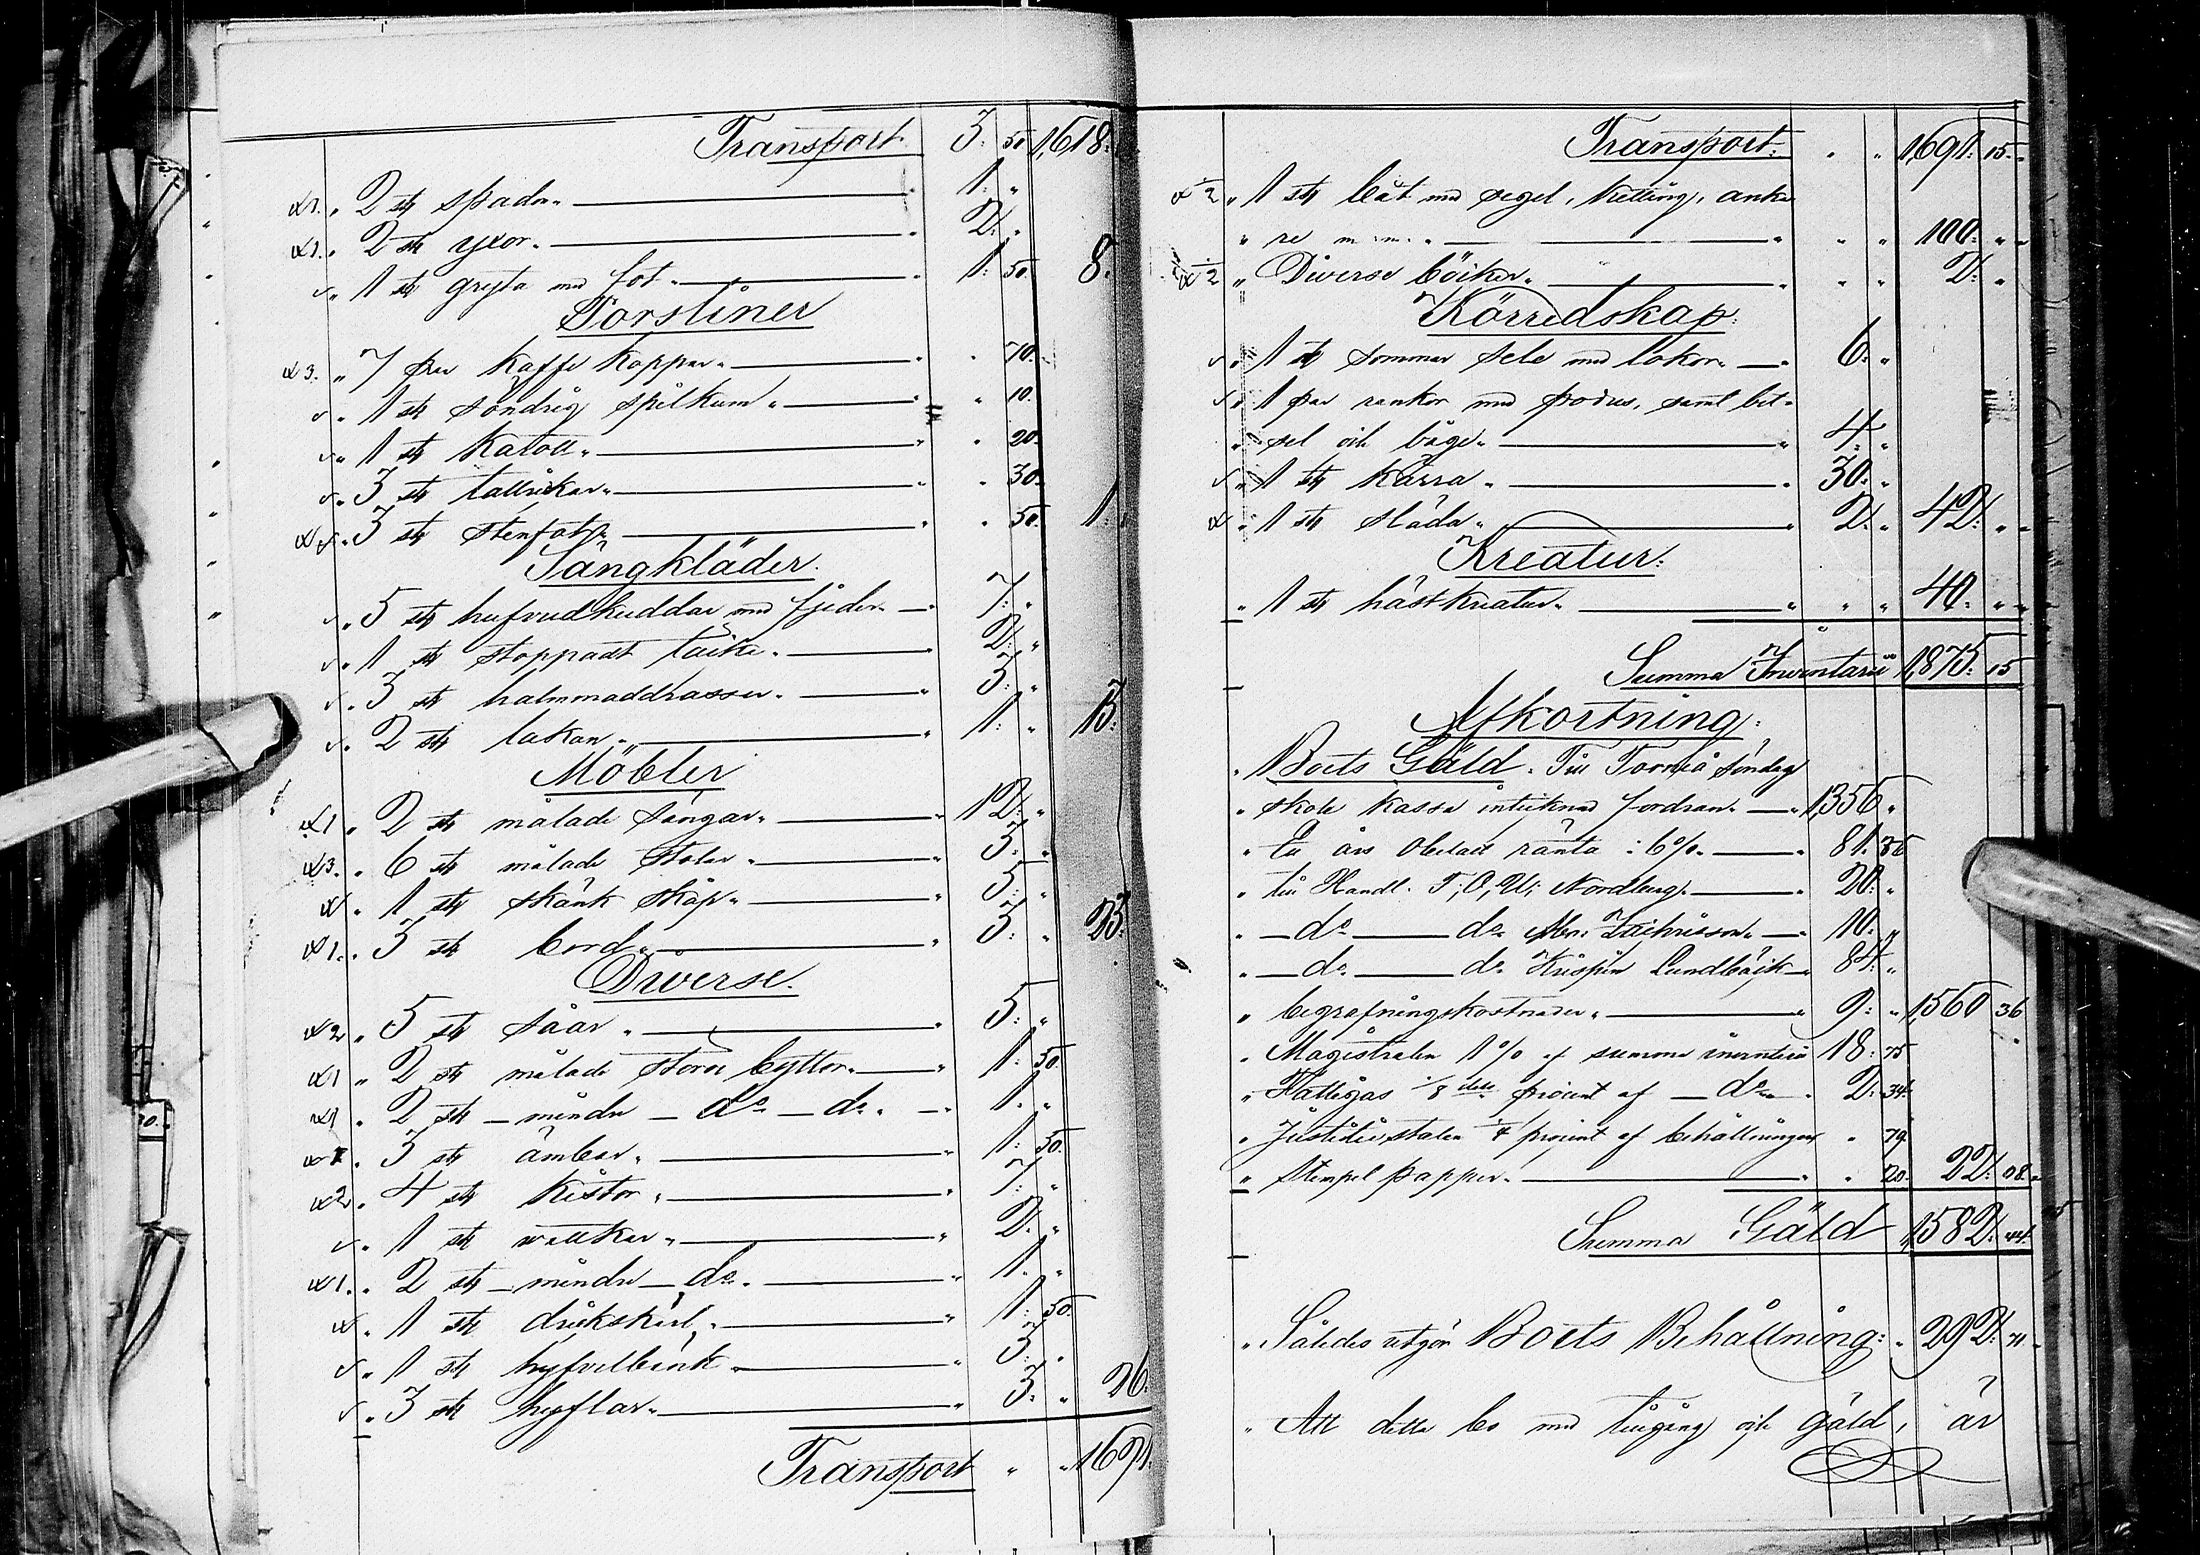 Transport 3: 50 1,618:
α1. „ 2 st spadar „ 1: „
α1. „ 2 st yxor. 2: „
v „ 1 st gryta med fot „ 1: 50. 8.
Porsliner
α3. „ 7 par Kaffe Koppar „ „ 70.
v „ 1 st söndrig spilkum „ „ 10.
v „ 1 st Karott „ „ 20.
v „ 3 st tallrickar „ „ 30.
v „ 3 st stenfat „ „ 50. 1:
Sängkläder.
v „ 5 st hufvudkuddar med fjeder „ 7: „
v „ 1 st stoppadt täcke „ 2: „
v „ 3 st halmmaddrasser „ 3: „
v „ 2 st lakan „ 1: „ 13:
Möbler
α1 „ 2 st målade sängar „ 12: „
α3. „ 6 st målade stolar „ 3: „
α „ 1 st skänk skåp „ 5: „
α1. „ 3 st bord „ 3: „ 23:
Diverse.
α2 „ 5 st såar „ 5: „
α1 „ 2 st målade stora byttor „ 1: 50.
α1 „ 2 st – mindre – do – do „ 1. „
„ 3 st ämbar „ 1: 50.
α2 „ 4 st kistor „ 7: „
v „ 1 st „ 2: „
α1. „ 2 st – mindre – do „ 1. „
α „ 1 st drickskärl „ 1: 50.
v „ 1 st hyfvelbänk „ 3: „
v „ 3 st hyflar „ 3: „ 26:
Transport „ „ 1691.
Transport: „ „ 1,691: 15.
α 2 „ 1 st båt med segel, ketting, anka
„ re m: m: „ „ „ 100: „
α 2 „ Diverse böcker „ „ „ 2: „
Körredskap:
v „ 1 st sommar sele med lokor „ 6: „
v „ 1 par rankor med podus, samt bet-
„ sel och båge „ 4: „
v „ 1 st kärra „ 30: „
α „ 1 st släda „ 2: „ 42: „
Kreatur:
„ 1 st hästkreatur „ „ „ 40: „
Summa Inventarii 1,875: 15
Afkortning:
„ Boets Gäld. Till Torneå söndag
„ skole kassa intecknad fordran „ 1,356 „
„ Ett års obetalt ränta i 6% „ 81. 36
„ till Handl. T, O, U; Nordberg „ 20: „
„ – do – do 10: „
„ – do – do Krispin Lundbäck „ 84: „
„ begrafningskostnader „ 9: „ 1,560 36
„ Magistraten 1% af summa inventarii 18: 75
„ Fattigas 1/8 dels procent af – do „ 2: 34.
„ 1/4 procent af behållningen „ 79
„ Stempel papper „ „ 20. 22: 08.
Summa Gäld 1,582: 44.
„ Således utgör Boets Behållning: „ 292: 71.
„ Att detta bo med tillgång och gäld, är